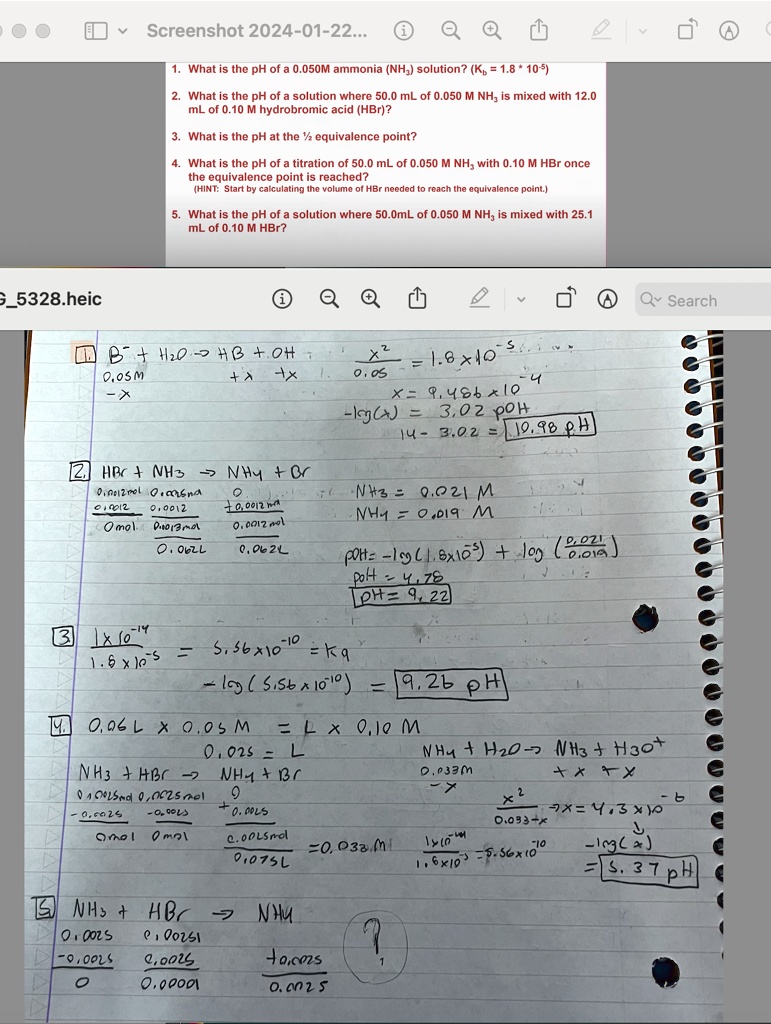 Screenshot 2024-01-22...
1. What is the pH of a 0.050M ammonia (NH₃) solution? (K_b = 1.8 * 10⁻⁵)
2. What is the pH of a solution where 50.0 mL of 0.050 M NH₃ is mixed with 12.0
mL of 0.10 M hydrobromic acid (HBr)?
3. What is the pH at the ½ equivalence point?
4. What is the pH of a titration of 50.0 mL of 0.050 M NH₃ with 0.10 M HBr once
the equivalence point is reached?
(HINT: Start by calculating the volume of HBr needed to reach the equivalence point.)
5. What is the pH of a solution where 50.0mL of 0.050 M NH₃ is mixed with 25.1
mL of 0.10 M HBr?
G_5328.heic
Search
1. B⁻ + H₂O → HB + OH
0.05M +x +x
-x
x²/0.05 = 1.8 x 10⁻⁵
x = 9.486 x 10⁻⁴
-log(x) = 3.02 pOH
14 - 3.02 = 10.98 pH
2. HBr + NH₃ → NH₄ + Br
0.0012mol 0.0025mol 0
0.0012 0.0012 +0.0012mol
0mol 0.0013mol 0.0012mol
0.062L 0.062L
NH₃ = 0.021 M
NH₄ = 0.019 M
pOH = -log(1.8x10⁻⁵) + log (0.021/0.019)
pOH = 4.78
pH = 9.22
3. 1x10⁻¹⁴/1.8x10⁻⁵ = 5.56x10⁻¹⁰ = Ka
-log(5.56x10⁻¹⁰) = 9.26 pH
4. 0.06L x 0.05M = L x 0.10M
0.025 = L
NH₃ + HBr → NH₄ + Br
0.0025mol 0.0025mol 0
-0.0025 -0.0025 +0.0025
0mol 0mol 0.0025mol
0.075L = 0.033M
NH₄ + H₂O → NH₃ + H₃O⁺
0.033M +x +x
-x
x²/0.033+x → x = 4.3x10⁻⁶
1x10⁻¹⁴/1.8x10⁻⁵ = 5.56x10⁻¹⁰
-log(x)
= 5.37 pH
5. NH₃ + HBr → NH₄
0.0025 0.00251
-0.0025 0.0025 +0.0025
0 0.00001 0.0025
?